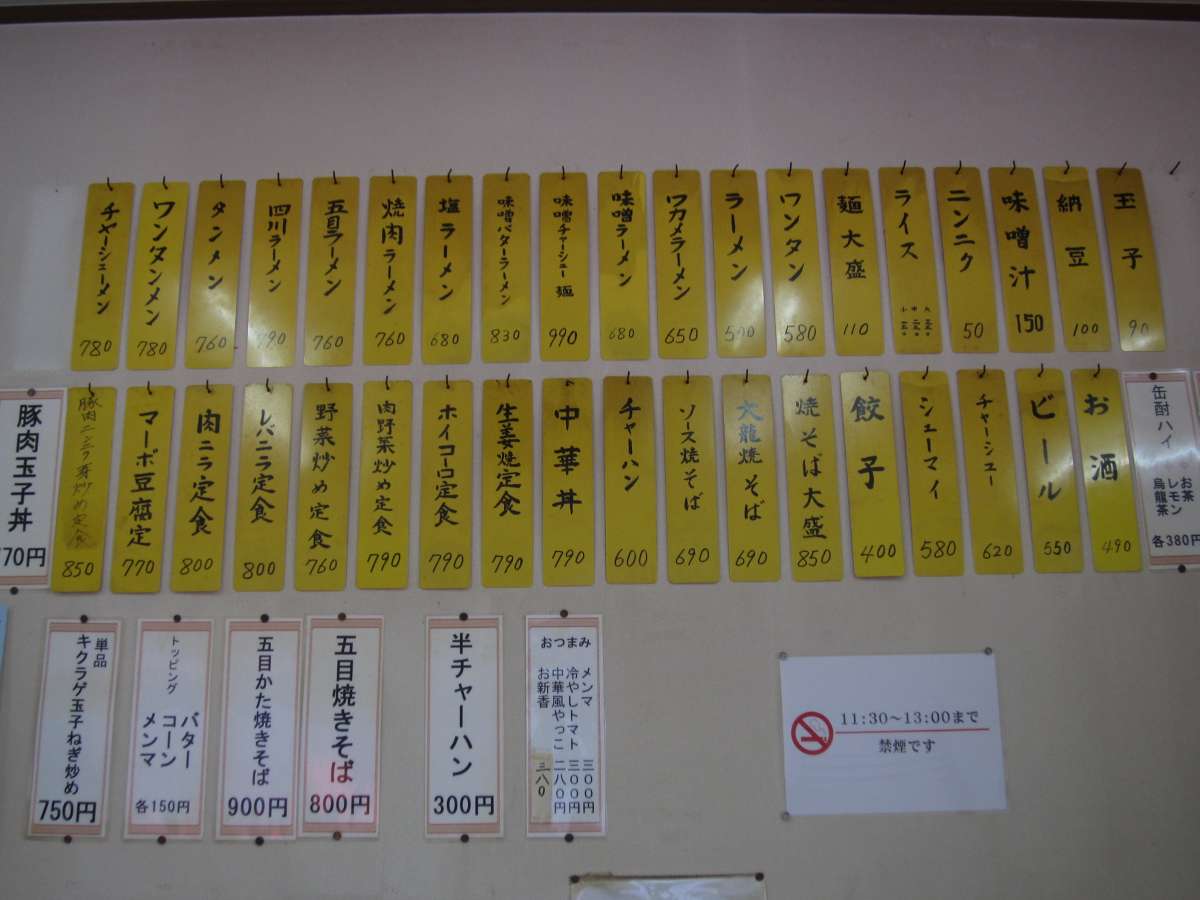 玉子 90
納豆 100
味噌汁 150
ニンニク 50
ライス
麺大盛 110
ワンタン 580
ラーメン
ワカメラーメン 650
味噌ラーメン 680
味噌チャーシュー麺 990
味噌バターラーメン 830
塩ラーメン 680
焼肉ラーメン 760
五目ラーメン 760
四川ラーメン 790
タンメン 760
ワンタンメン 780
チャーシューメン 780
缶酎ハイ
お茶
レモン
烏龍茶
各380円
お酒 490
ビール 550
チャーシュー 620
シューマイ 580
餃子 400
焼そば大盛 850
大龍焼そば 690
ソース焼そば 690
チャーハン 600
中華丼 790
生姜焼定食 790
ホイコーロ定食 790
肉野菜炒め定食 790
野菜炒め定食 760
レバニラ定食 800
肉ニラ定食 800
マーボ豆腐定 770
豚肉ニンニク芽炒め定食 850
豚肉玉子丼
70円
おつまみ
メンマ 三〇〇円
冷やしトマト 三〇〇円
中華風やっこ 二八〇円
お新香 三八〇
半チャーハン
300円
五目焼きそば
800円
五目かた焼きそば
900円
トッピング
バター
コーン
メンマ
各150円
単品
キクラゲ玉子ねぎ炒め
750円
11:30～13:00まで
禁煙です